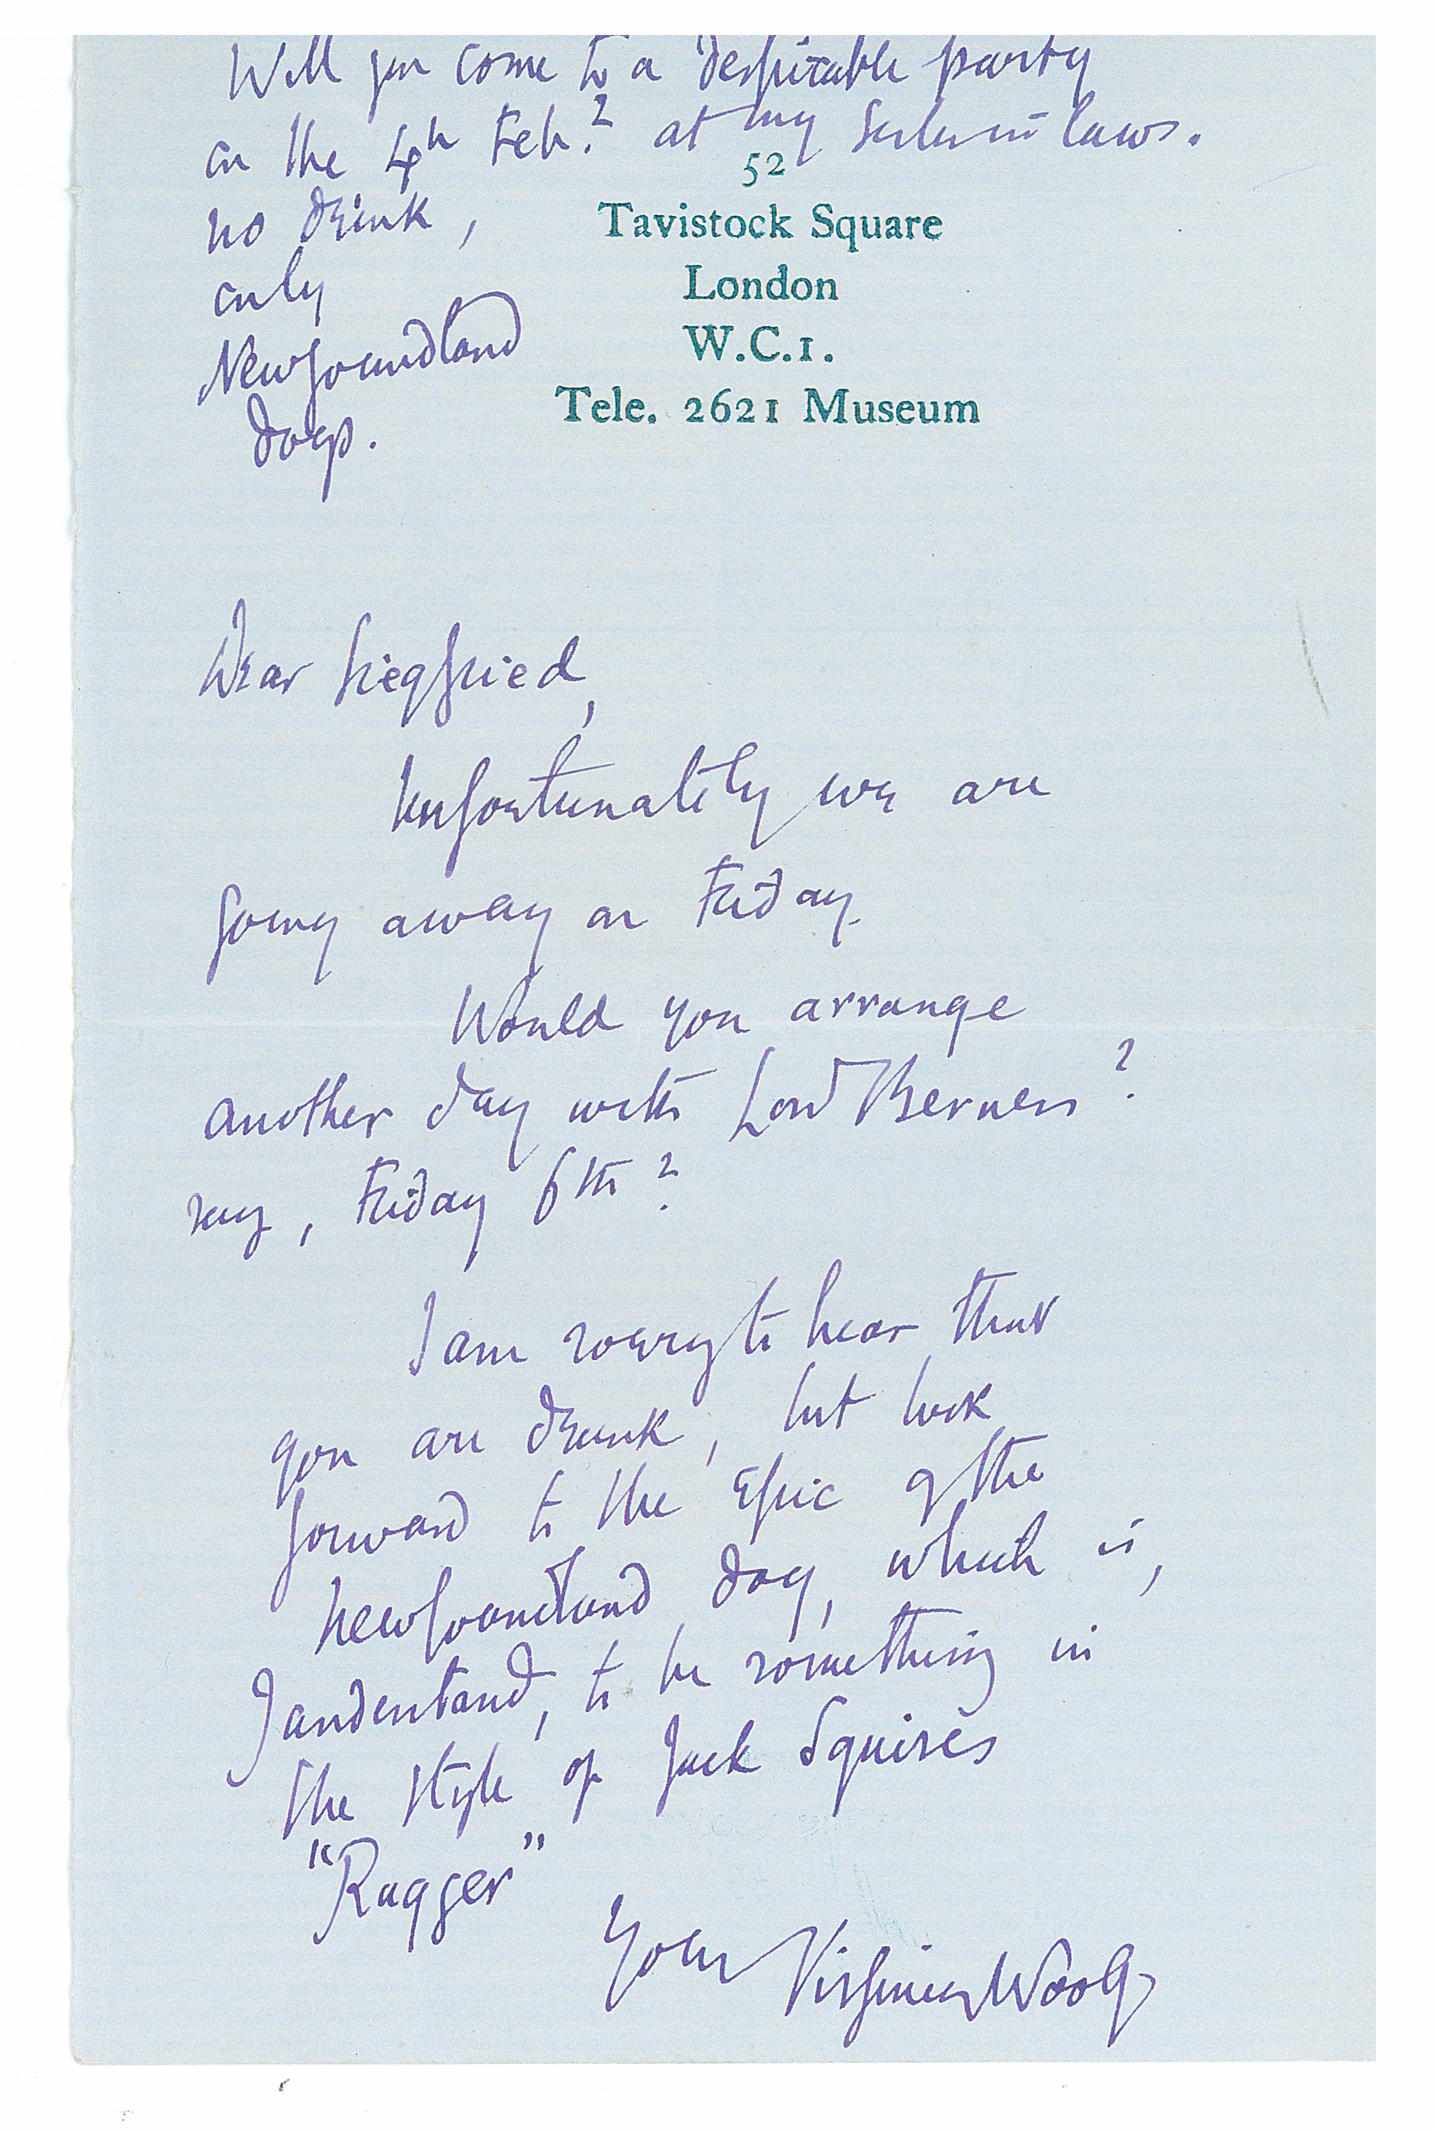 Will you come to a despicable party
on the 4th Feb? at my sister in laws.
no drink,
only
Newfoundland
dogs.
52
Tavistock Square
London
W.C.1.
Tele. 2621 Museum
Dear Siegfried,
Unfortunately we are
going away on Friday.
Would you arrange
another day with Lord Berners?
say, Friday 6th?
I am sorry to hear that
you are drunk, but look
forward to the Epic of the
Newfoundland dog, which is,
I understand, to be something in
the style of Jack Squires
"Rugger"
Your Virginia Woolf